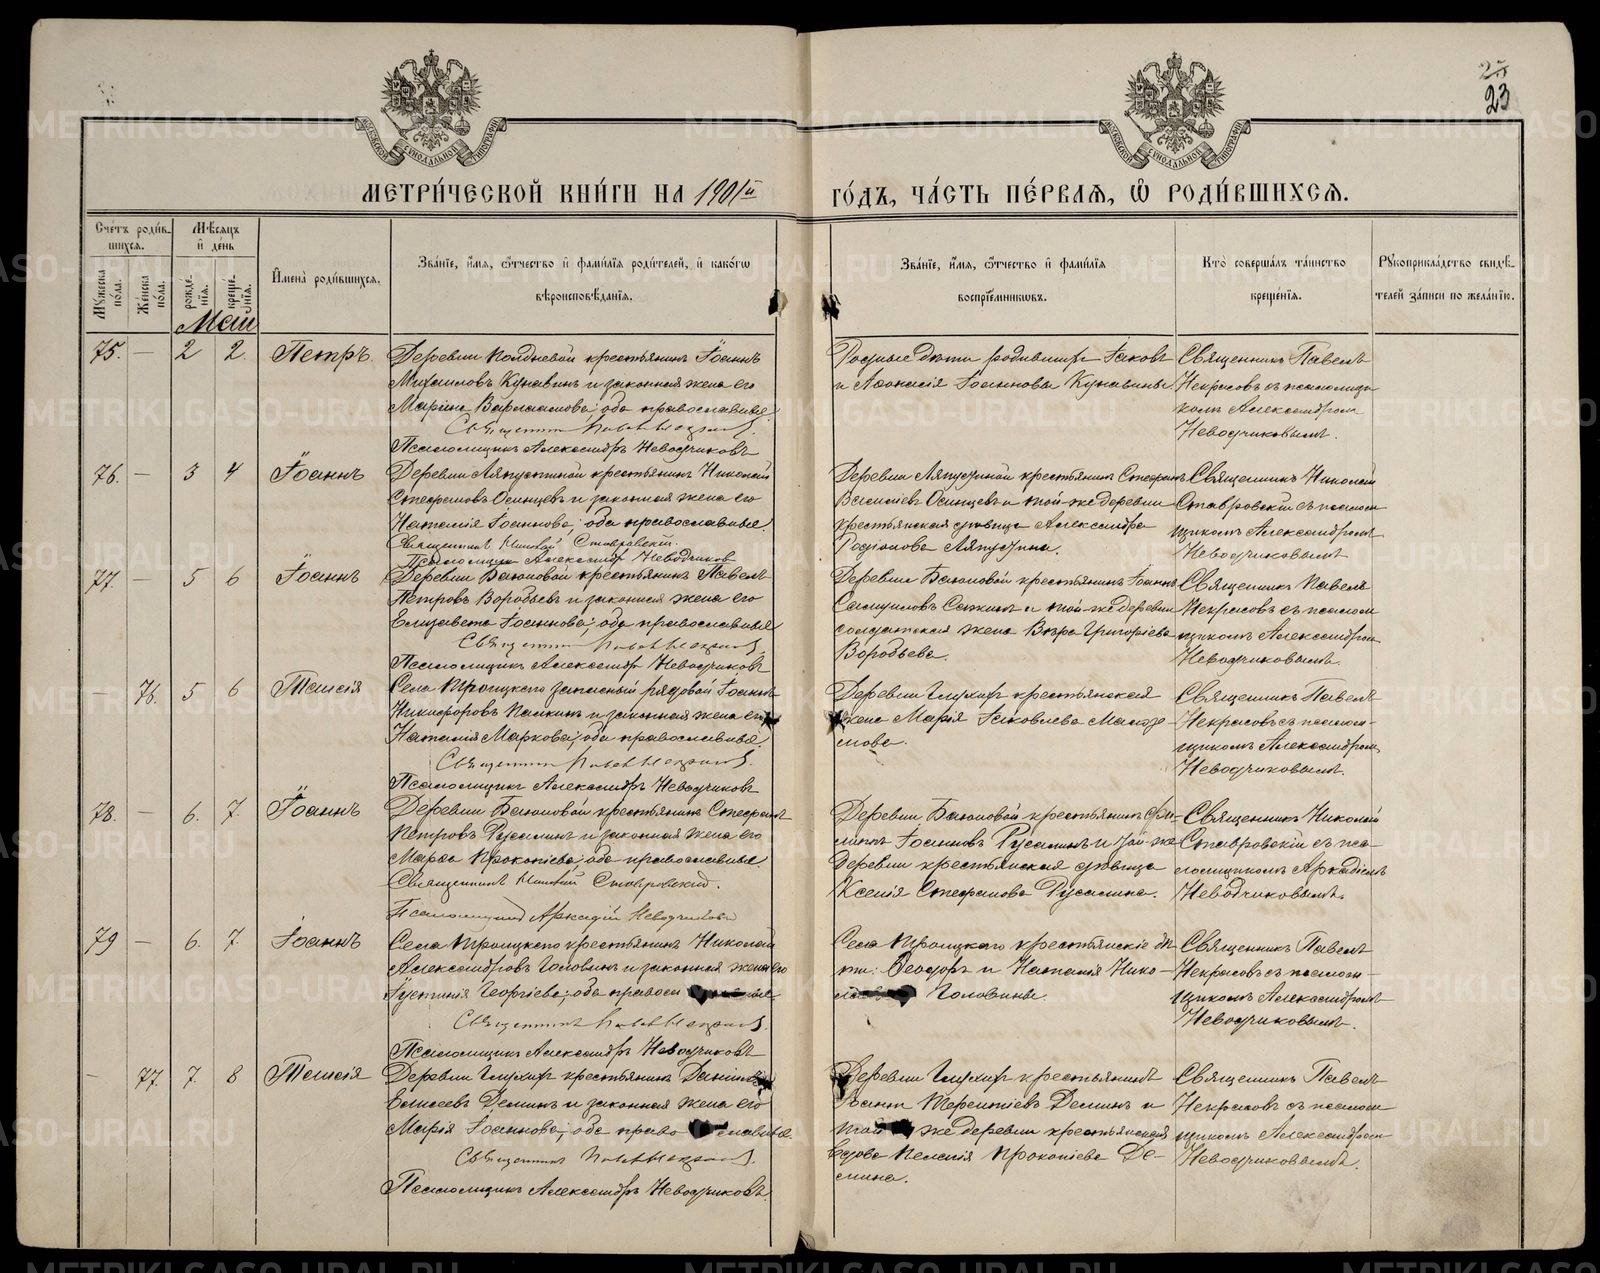 25
23
МОСКОВСКОЙ СѴНОДАЛЬНОЙ ТИПОГРАФІИ
МОСКОВСКОЙ СѴНОДАЛЬНОЙ ТИПОГРАФІИ
МЕТРИ́ЧЕСКОЙ КНИ́ГИ НА 1901й ГО́ДЪ, ЧА́СТЬ ПЕ́РВАѦ, Ѡ҆ РОДИ́ВШИХСѦ.
Сче́тъ роди́в-
шихсѧ.
Мꙋ́жеска по́ла.
Же́нска по́ла.
Мѣ́сѧцъ
и҆ де́нь
рожде́-нїѧ.
креще́-нїѧ.
И҆мена̀ роди́вшихсѧ.
Зва́нїе, и҆́мѧ, ѻ҆́тчество и҆ фами́лїѧ роди́телей, и҆ како́гѡ
вѣроисповѣ́данїѧ.
Зва́нїе, и҆́мѧ, ѻ҆́тчество и҆ фами́лїѧ
воспрїе́мникѡвъ.
Кто̀ соверша́лъ та́инство
креще́нїѧ.
Рꙋкоприкла́дство свидѣ́-
телей за́писи по жела́нїю.
Май
75. — 2 2. Петръ.
Деревни Полдневой крестьянинъ Іоаннъ
Михаиловъ Кунавинъ и законная жена его
Марина Варлаамова; оба православные.
Священникъ Павелъ Некрасовъ.
Псаломщикъ Александръ Неводчиковъ
Родные дети родившихъ Іаковъ
и Аѳанасія Іоанновы Кунавины.
Священникъ Павелъ
Некрасовъ съ псаломщи-
комъ Александромъ
Неводчиковымъ.
76. — 3 4 Іоаннъ
Деревни Ляпустиной крестьянинъ Николай
Стефановъ Осинцевъ и законная жена его
Наталія Іоаннова; оба православные.
Священникъ Николай Ставровскій.
Псаломщикъ Александръ Неводчиков
Деревни крестьянинъ Стефанъ
Осинцевъ и той-же деревни
крестьянская дѣвица Александра
Родіонова Ляпустина.
Священникъ Николай
Ставровскій съ псалом
щикомъ Александромъ
Неводчиковымъ
77. — 5 6 Іоаннъ
Деревни Баюновой крестьянинъ Павелъ
Петровъ Воробьевъ и законная жена его
Елизавета Іоаннова; оба православные
Священникъ Павелъ Некрасовъ.
Псаломщикъ Александръ Неводчиковъ
Деревни Баюновой крестьянинъ Іоаннъ
Самуиловъ и той-же деревни
солдатская жена Вѣра Григоріева
Воробьева.
Священникъ Павелъ
Некрасовъ съ псалом
щикомъ Александром
Неводчиковымъ.
— 76. 5 6 Таисія
Села Троицкаго запасный рядовой Іоаннъ
Никифоровъ и законная жена его
Наталія Маркова; оба православные.
Священникъ Павелъ Некрасовъ.
Псаломщикъ Александръ Неводчиковъ
Деревни Глухихъ крестьянская
жена Марія Іаковлева
Священникъ Павелъ
Некрасовъ съ псалом-
щикомъ Александром
Неводчиковымъ.
78. — 6. 7. Іоаннъ
Деревни Баюновой крестьянинъ Стефанъ
Петровъ Русалинъ и законная жена его
Марѳа Прокопіева; оба православные.
Священникъ Николай Ставровский.
Псаломщикъ Аркадій Неводчиковъ
Деревни Баюновой крестьянинъ
Іоанновъ Русалинъ и той-же
деревни крестьянская дѣвица
Ксенія Стефанова Русалина.
Священникъ Николай
Ставровскій съ пса-
ломщикомъ Аркадіемъ
Неводчиковымъ.
79 — 6. 7. Іоаннъ
Села Троицкаго крестьянинъ Николай
Александровъ Головинъ и законная жена его
Іустинія Георгіева; оба правосл
Священникъ Павелъ Некрасовъ.
Псаломщикъ Александръ Неводчиковъ
Села Троицкаго крестьянскіе дѣ
ти: Ѳеодоръ и Наталія Нико-
Головины.
Священникъ Павелъ
Некрасовъ съ псалом-
щикомъ Александромъ
Неводчиковымъ.
— 77. 7. 8 Таисія
Деревни Глухихъ крестьянинъ
Елисеевъ Деминъ и законная жена его
Марія Іоаннова; оба право славные.
Священникъ Павелъ Некрасовъ.
Псаломщикъ Александръ Неводчиковъ.
Деревни Глухихъ крестьянинъ
Іоаннъ Терентіевъ Деминъ и
той же деревни крестьянская
вдова Пелагія Прокопіева Де-
мина.
Священникъ Павелъ
Некрасовъ съ псалом
щикомъ Александром
Неводчиковымъ.
METRIKI.GASO-URAL.RU